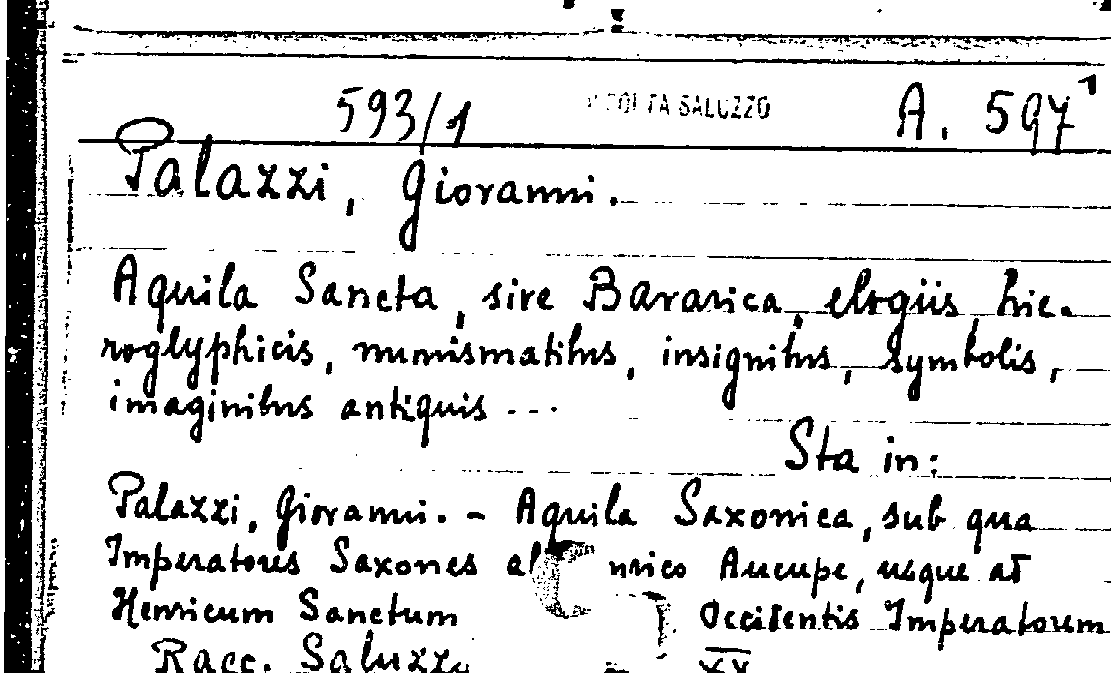 593/1 RACCOLTA SALUZZO A. 597¹
Palazzi, Giovanni.
Aquila Sancta, sive Bavarica, elogiis, hie-
roglyphicis, numismatibus, insignibus, symbolis,
imaginibus antiquis ...
Sta in:
Palazzi, Giovanni. - Aquila Saxonica, sub qua
Imperatores Saxones nrico Aucupe, usque ad
Henricum Sanctum Occidentis Imperatorem
Racc. Saluzzo XX